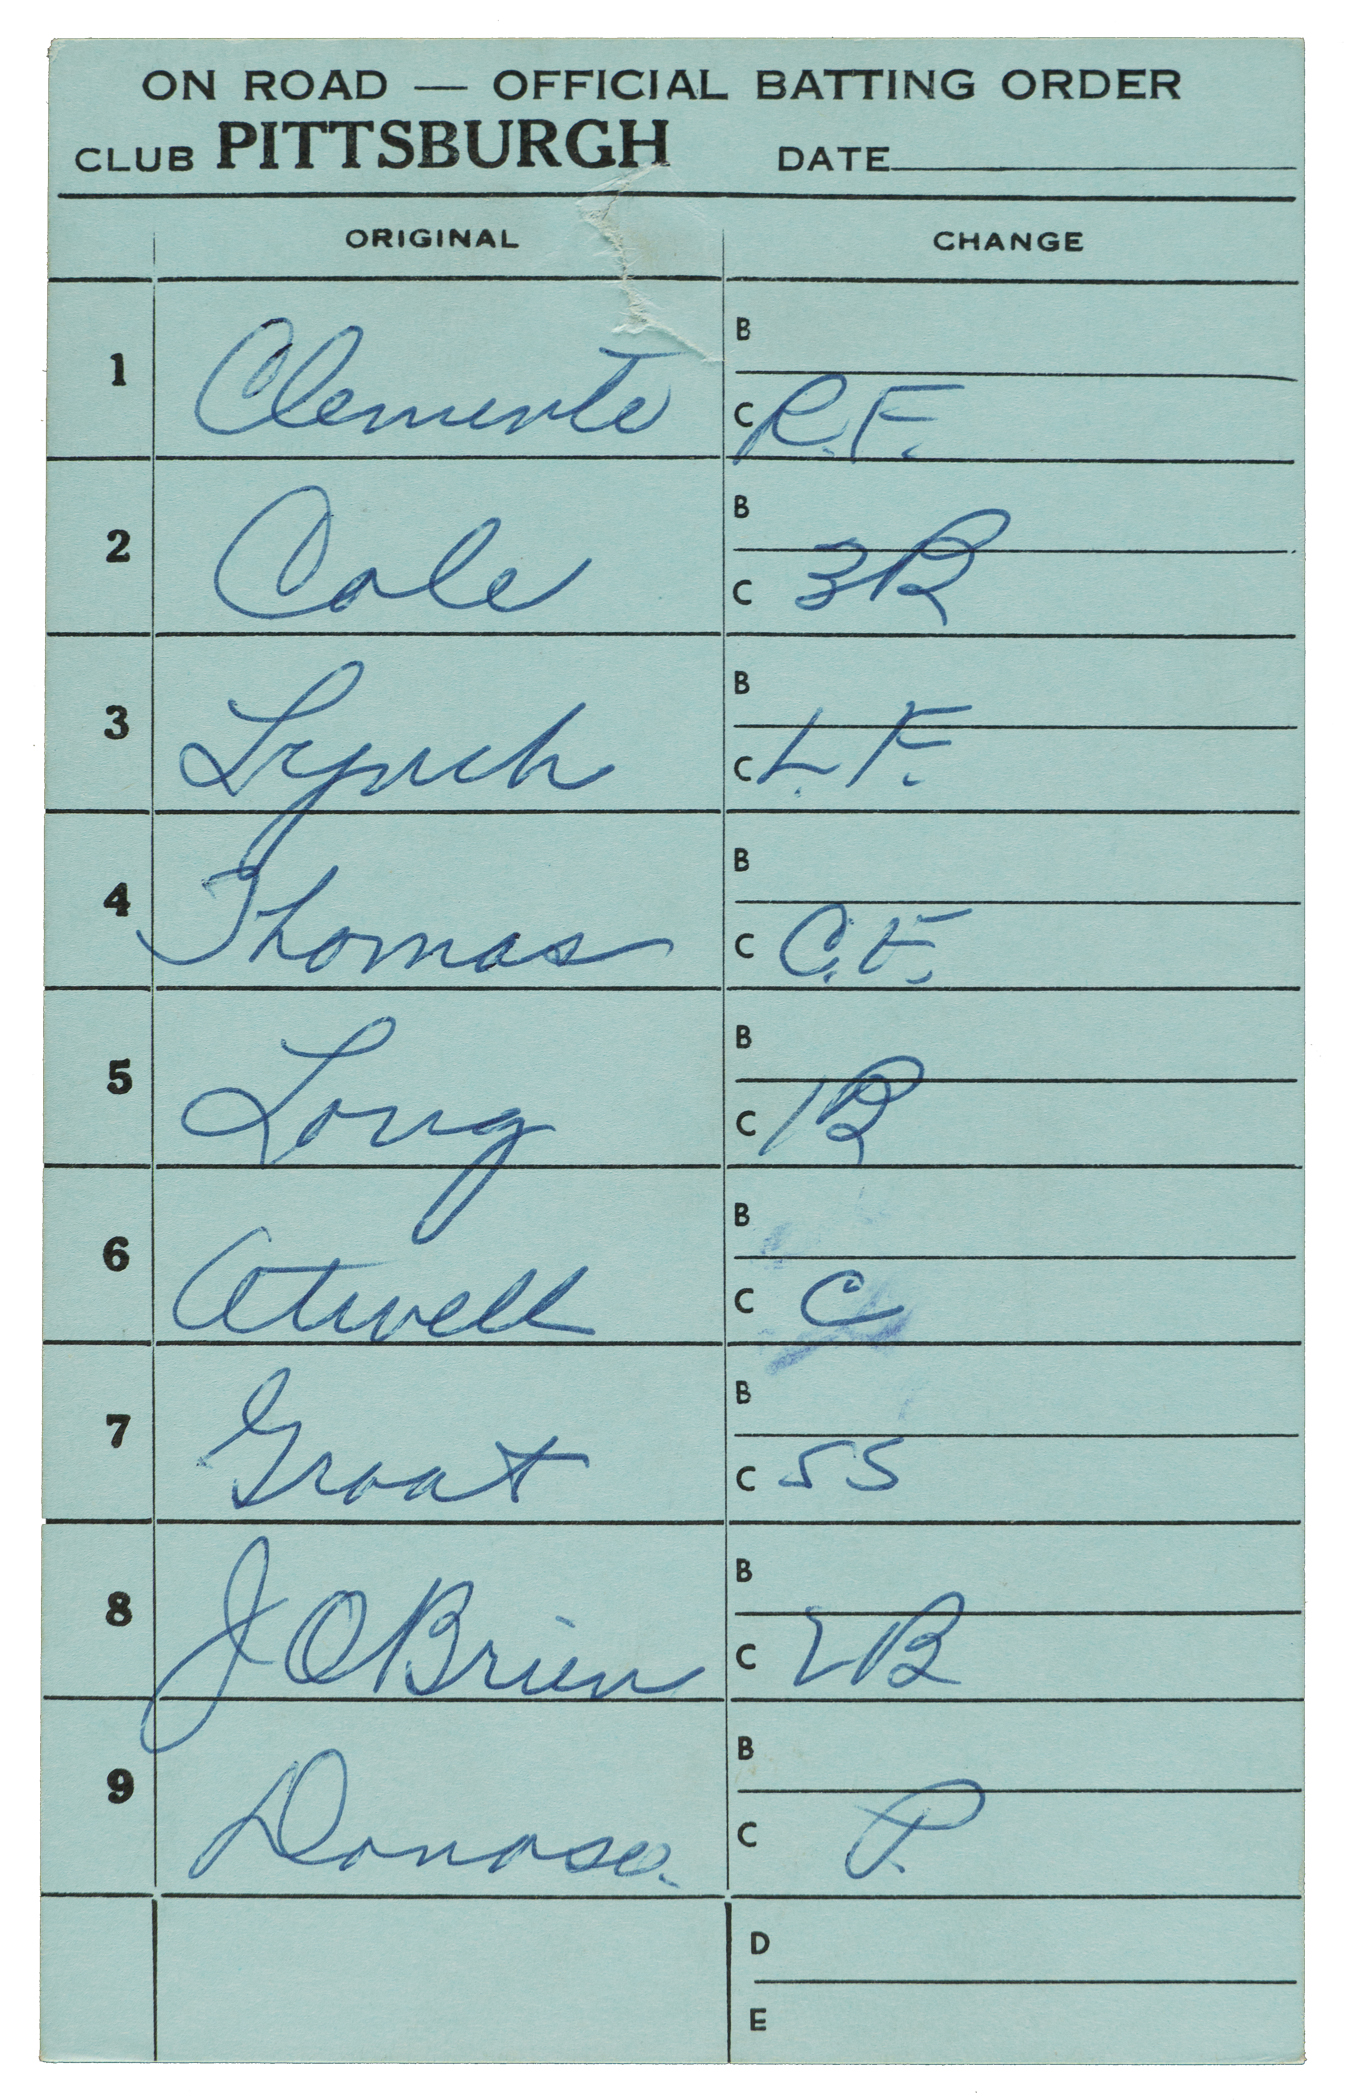 ON ROAD — OFFICIAL BATTING ORDER
CLUB PITTSBURGH DATE
ORIGINAL CHANGE
B
1 Clemente C R.F.
B
2 Cole C 3B
B
3 Lynch C L.F.
B
4 Thomas C C.F.
B
5 Long C 1B
B
6 Atwell C C
B
7 Groat C SS
B
8 J OBrien C 2B
B
9 Donoso. C P.
D
E